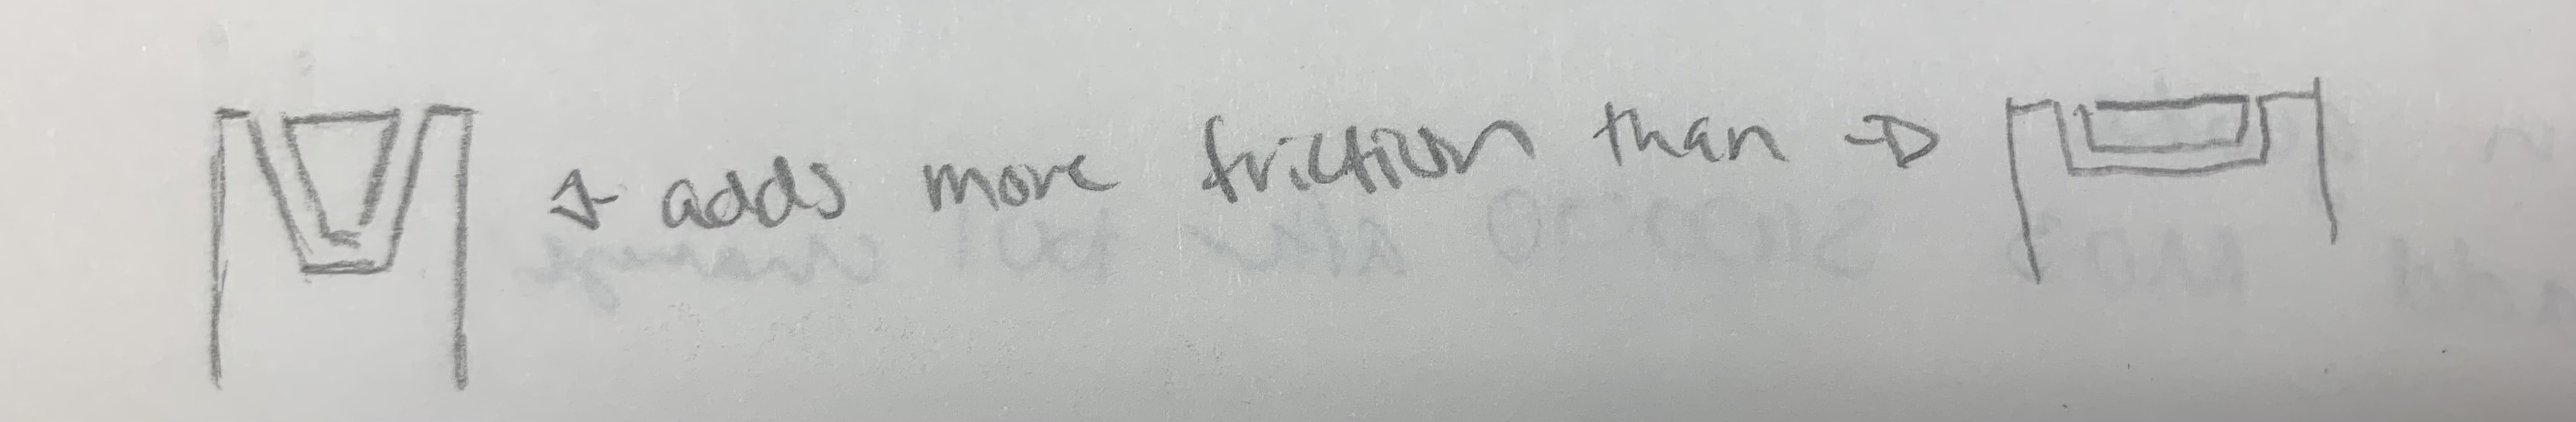 ← adds more friction than →